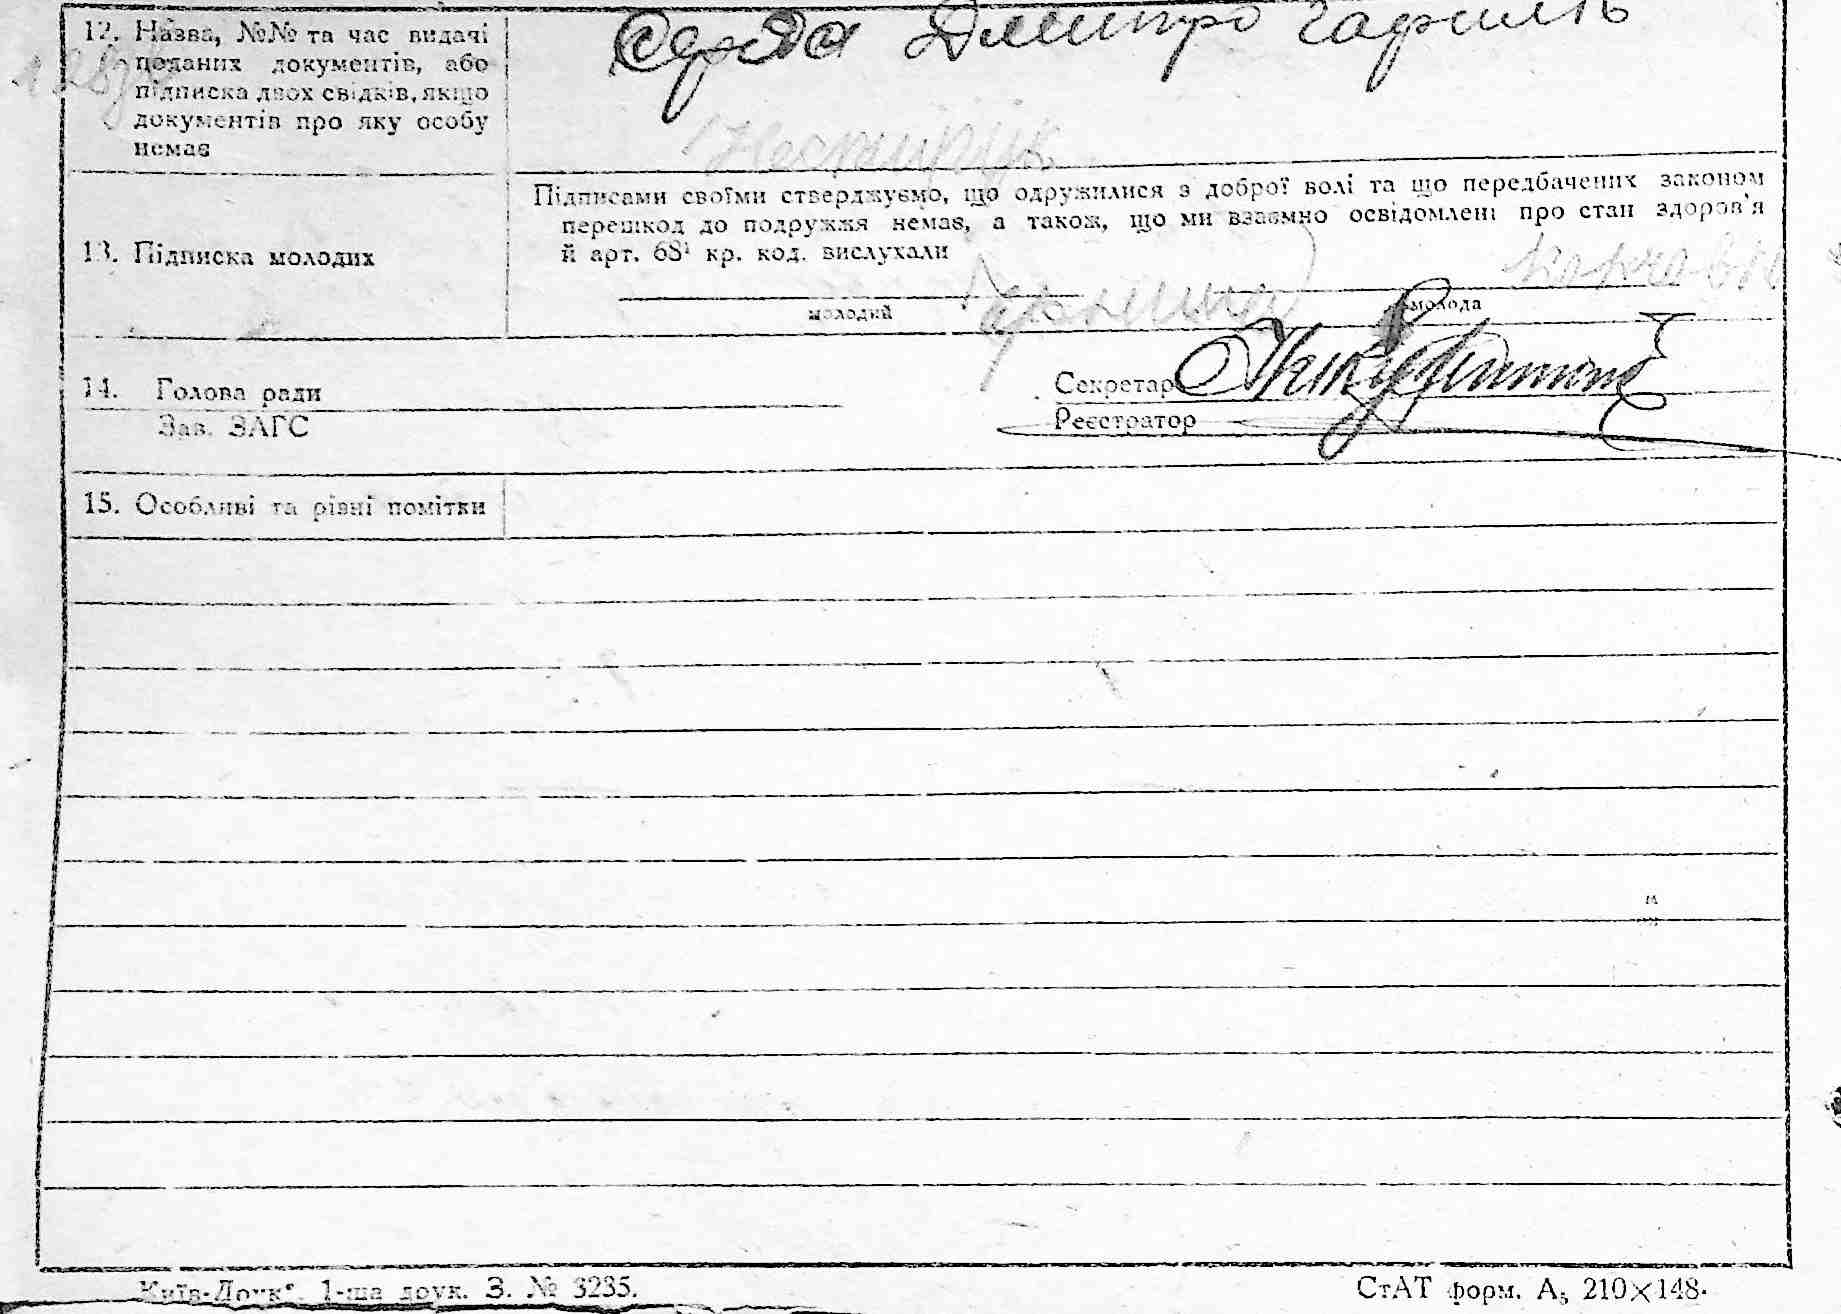 Середа Дмитро
12. Назва, №№ та час видачі
поданих документів, або
підписка двох свідків, якщо
документів про яку особу
немає
Підписами своїми стверджуємо, що одружилися з доброї волі та що передбачених законом
перешкод до подружжя немає, а також, що ми взаємно освідомлені про стан здоров'я
й арт. 68¹ кр. код. вислухали
13. Підписка молодих
молодий
молода
14. Голова ради
Секретар
Зав. ЗАГС
Реєстратор
15. Особливі та різні помітки
Київ-Друк". 1-ша друк. З. № 3235.
СтАТ форм. А₅ 210×148.